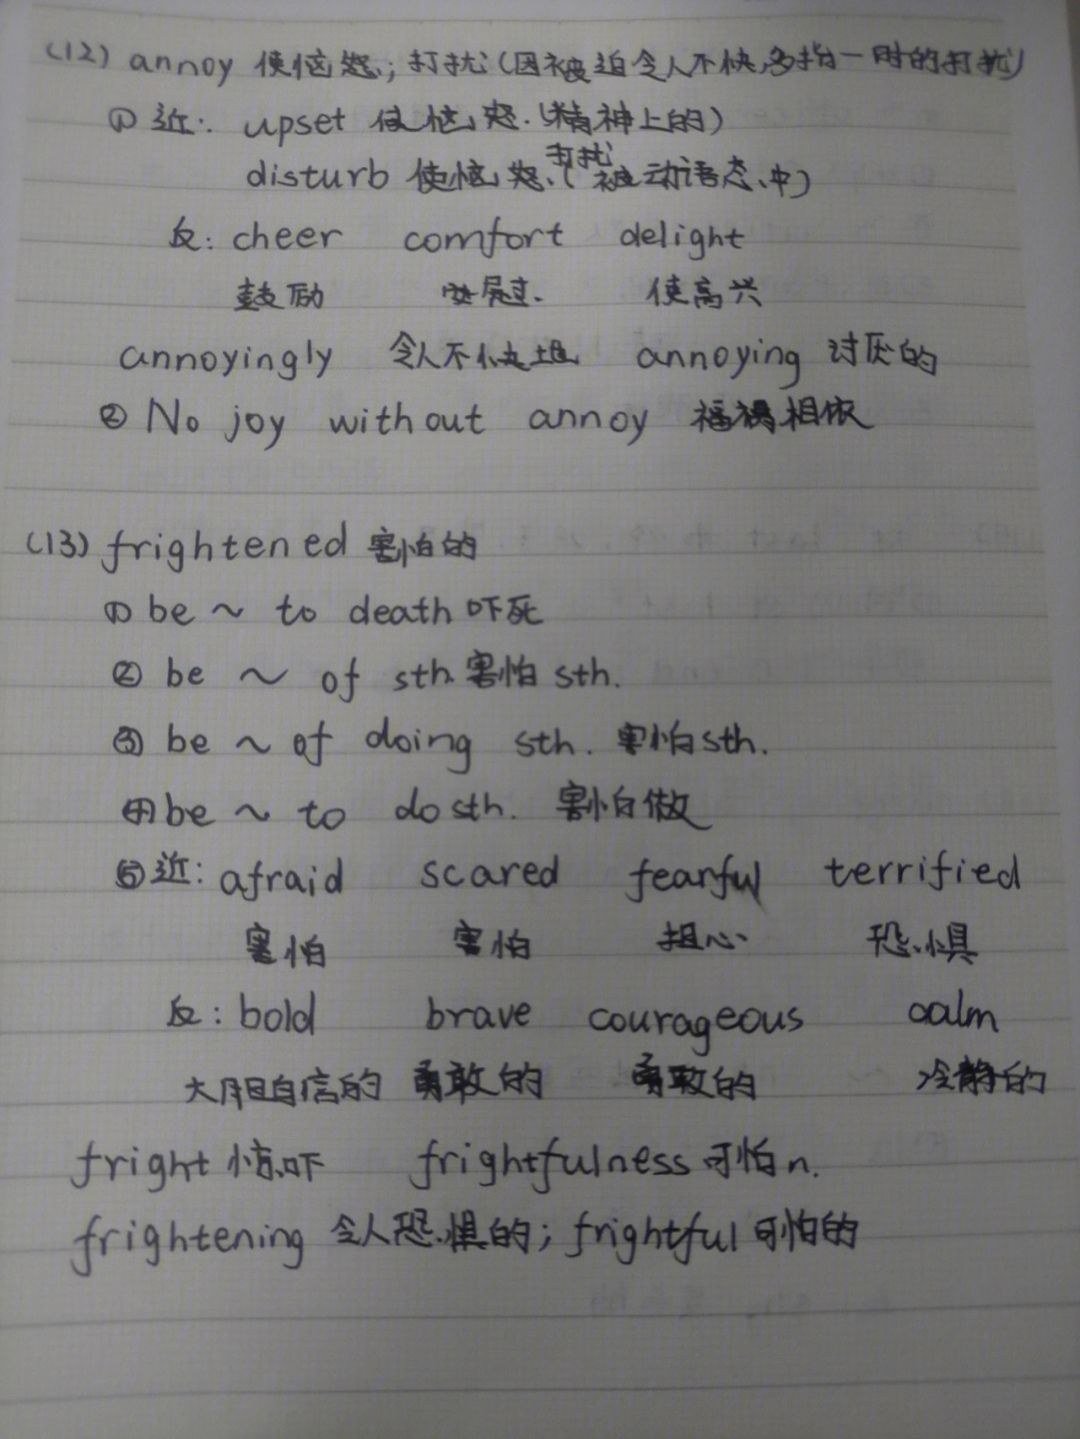 (12) annoy 使恼怒；打扰(因被迫令人不快,多指一时的打扰)
① 近: upset 使恼怒.(精神上的)
打扰
disturb 使恼怒.(被动语态中)
反: cheer comfort delight
鼓励 安慰. 使高兴
annoyingly 令人不快地 annoying 讨厌的
② No joy without annoy 福祸相依
(13) frightened 害怕的
① be ~ to death 吓死
② be ~ of sth. 害怕 sth.
③ be ~ of doing sth. 害怕sth.
④ be ~ to do sth. 害怕做
⑤近: afraid scared fearful terrified
害怕 害怕 担心 恐惧
反: bold brave courageous calm
大胆自信的 勇敢的 勇敢的 冷静的
fright 惊吓 frightfulness 可怕n.
frightening 令人恐惧的; frightful 可怕的